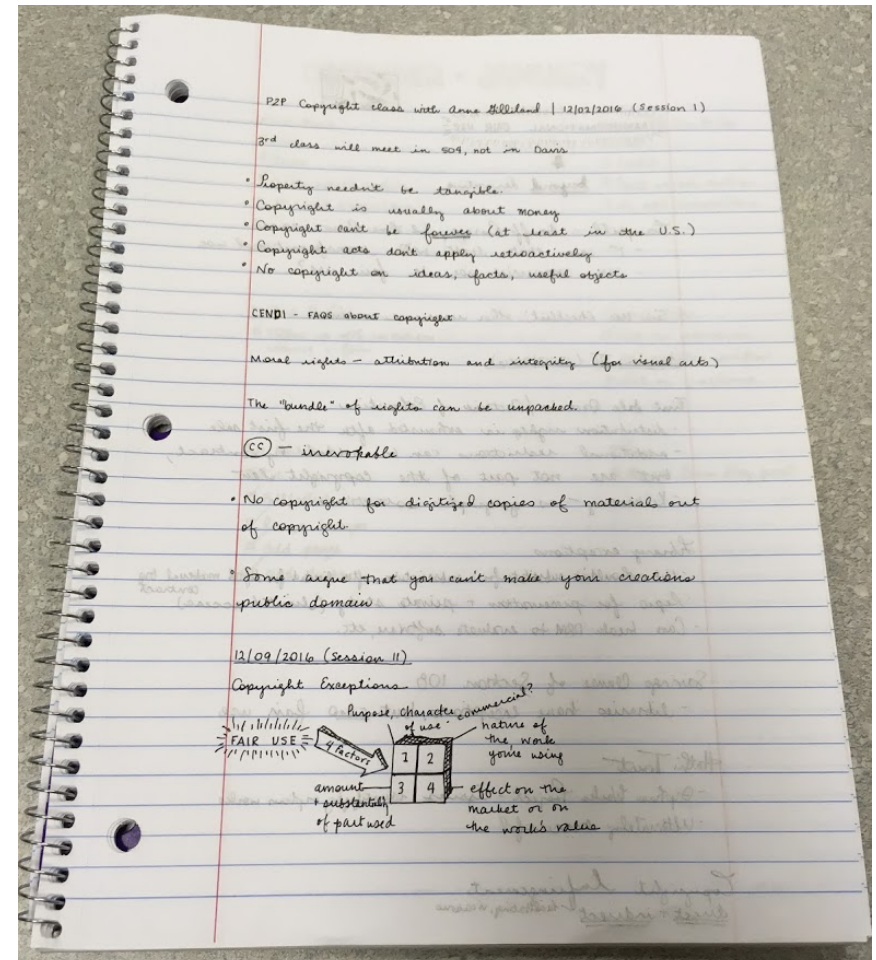 P2P Copyright class with Anne Gilliland | 12/02/2016 (Session 1)
3rd class will meet in 509, not in Davis
• Property needn't be tangible.
• Copyright is usually about money
• Copyright can't be forever (at least in the U.S.)
• Copyright acts don't apply retroactively
• No copyright on ideas, facts, useful objects
CENDI - FAQS about copyright
Moral rights - attribution and integrity (for visual arts)
The "bundle" of rights can be unpacked.
CC - irrevokable
• No copyright for digitized copies of materials out
of copyright.
• Some argue that you can't make your creations
public domain
12/09/2016 (Session II)
Copyright Exceptions
FAIR USE
4 factors
1 2
3 4
Purpose, character
of use - commercial?
nature of
the work
you're using
amount
+ substantiality
of part used
effect on the
market or on
the work's value